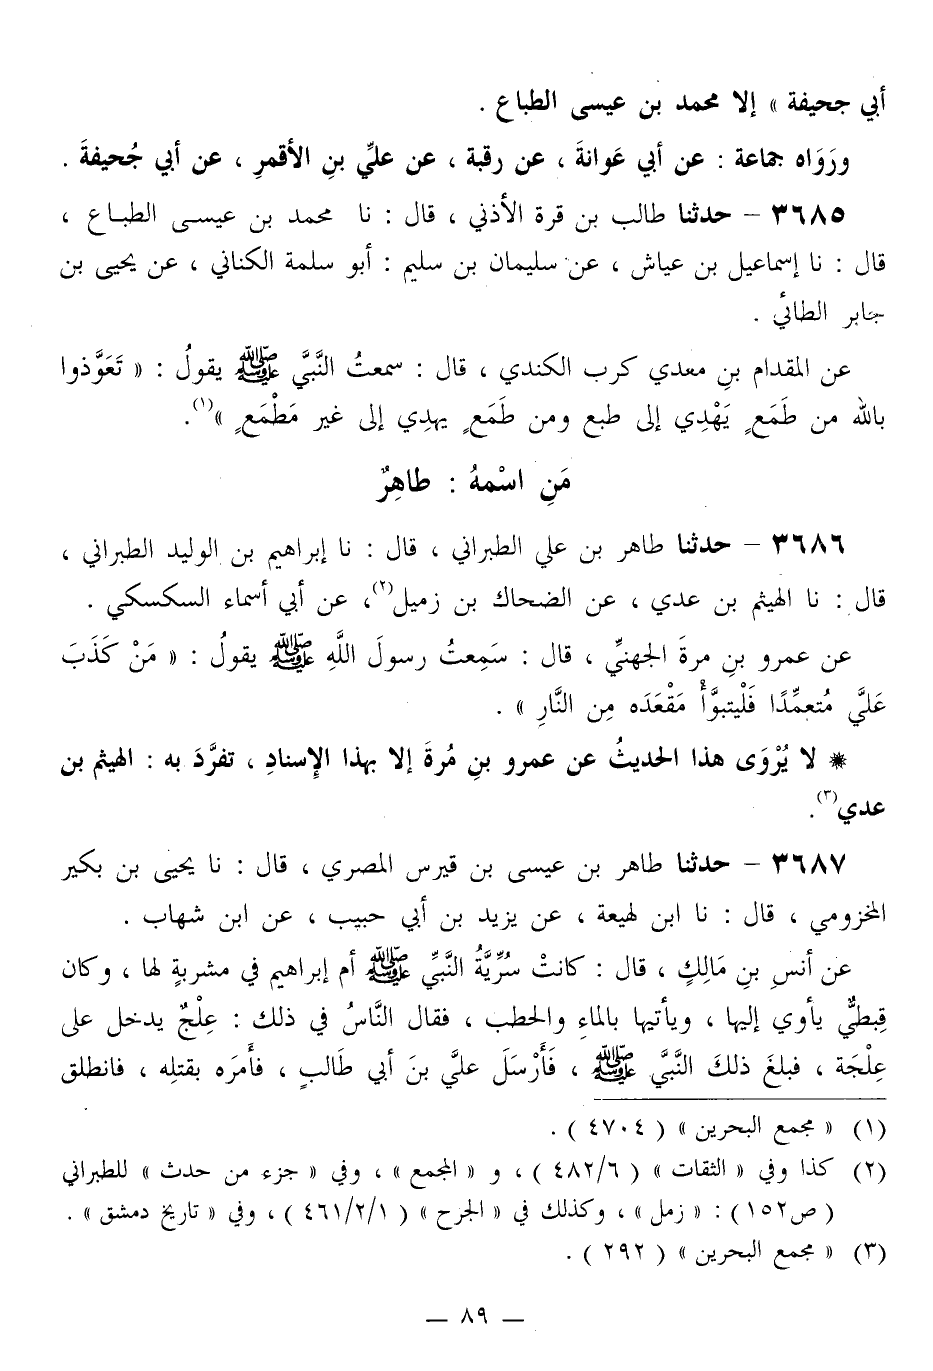 أبي جحيفة » إلا محمد بن عيسى الطباع .
ورَوَاه جماعة : عن أبي عَوانةَ ، عن رقبة ، عن عليِّ بنِ الأقمرِ ، عن أبي جُحيفةَ .
٣٦٨٥ – حدثنا طالب بن قرة الأذني ، قال : نا محمد بن عيسى الطباع ،
قال : نا إسماعيل بن عياش ، عن سليمان بن سليم : أبو سلمة الكناني ، عن يحيى بن
جابر الطائي .
عن المقدام بنِ معدي كرب الكندي ، قال : سمعتُ النَّبيَّ ﷺ يقولُ : « تَعَوَّذوا
بالله من طَمَعٍ يَهْدِي إلى طبع ومن طَمَعٍ يهدِي إلى غير مَطْمَعٍ »(١).
مَنِ اسْمهُ : طاهِرٌ
٣٦٨٦ – حدثنا طاهر بن علي الطبراني ، قال : نا إبراهيم بن الوليد الطبراني ،
قال : نا الهيثم بن عدي ، عن الضحاك بن زميل(٢)، عن أبي أسماء السكسكي .
عن عمرو بنِ مرةَ الجهنيِّ ، قال : سَمِعتُ رسولَ اللَّهِ ﷺ يقولُ : « مَنْ كَذَبَ
عَلَيَّ مُتعمِّدًا فَلْيتبوَّأْ مَقْعَدَه مِن النَّارِ » .
* لا يُرْوَى هذا الحديثُ عن عمرو بنِ مُرةَ إلا بهذا الإسنادِ ، تفرَّدَ به : الهيثم بن
عدي(٣).
٣٦٨٧ – حدثنا طاهر بن عيسى بن قيرس المصري ، قال : نا يحيى بن بكير
المخزومي ، قال : نا ابن لهيعة ، عن يزيد بن أبي حبيب ، عن ابن شهاب .
عن أنسِ بنِ مَالِكٍ ، قال : كانتْ سُرِّيَّةُ النَّبيِّ ﷺ أم إبراهيم في مشربةٍ لها ، وكان
قِبطيٌّ يأوي إليها ، ويأتيها بالماءِ والحطب ، فقال النَّاسُ في ذلك : عِلْجٌ يدخل على
عِلْجَة ، فبلغَ ذلكَ النَّبيَّ ﷺ ، فَأَرْسَلَ عليَّ بنَ أبي طَالبٍ ، فأمَره بقتلِه ، فانطلق
(١) « مجمع البحرين » ( ٤٧٠٤ ) .
(٢) كذا وفي « الثقات » ( ٤٨٢/٦ ) ، و « المجمع » ، وفي « جزء من حدث » للطبراني
( ص١٥٢ ) : « زمل » ، وكذلك في « الجرح » ( ٤٦١/٢/١ ) ، وفي « تاريخ دمشق » .
(٣) « مجمع البحرين » ( ٢٩٢ ) .
— ٨٩ —